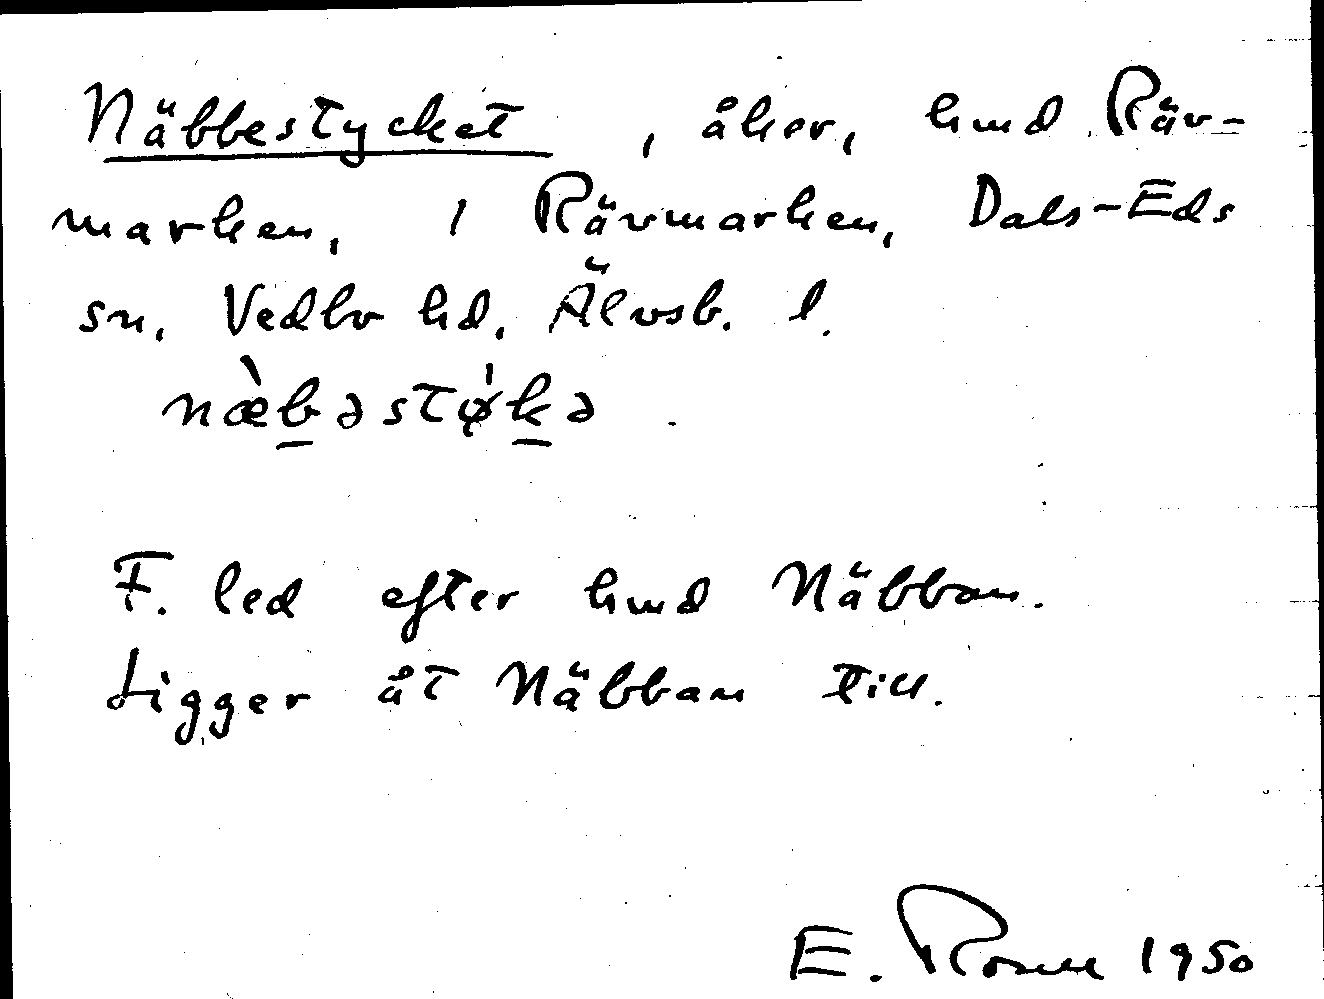 Näbbestycket, åker, hmd Räv-
marken, 1 Rävmarken, Dals-Eds
sn, Vedbo hd. Älvsb. l.
næ̀b̲əstø̍k̲ə.
F. led efter hmd Näbban.
Ligger åt Näbban till.
E. 1950